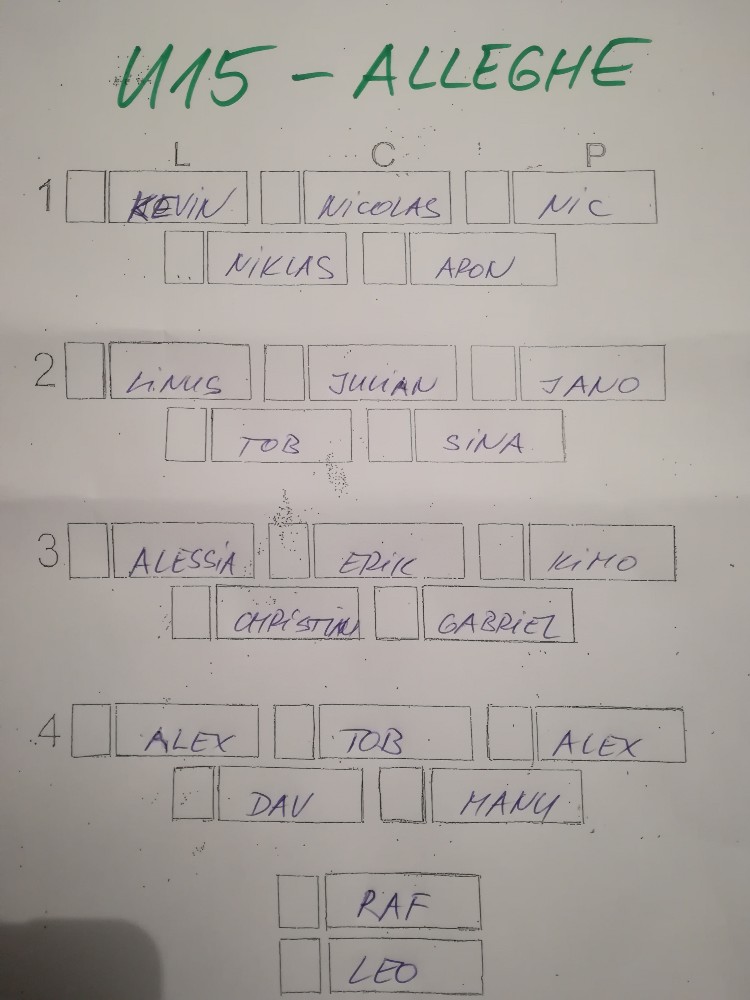 U15 - ALLEGHE
L C P
1 KEVIN NICOLAS NIC
NIKLAS ARON
2 LINUS JULIAN JANO
TOB SINA
3 ALESSIA ERIK KIMO
CHRISTIAN GABRIEL
4 ALEX TOB ALEX
DAV MANU
RAF
LEO